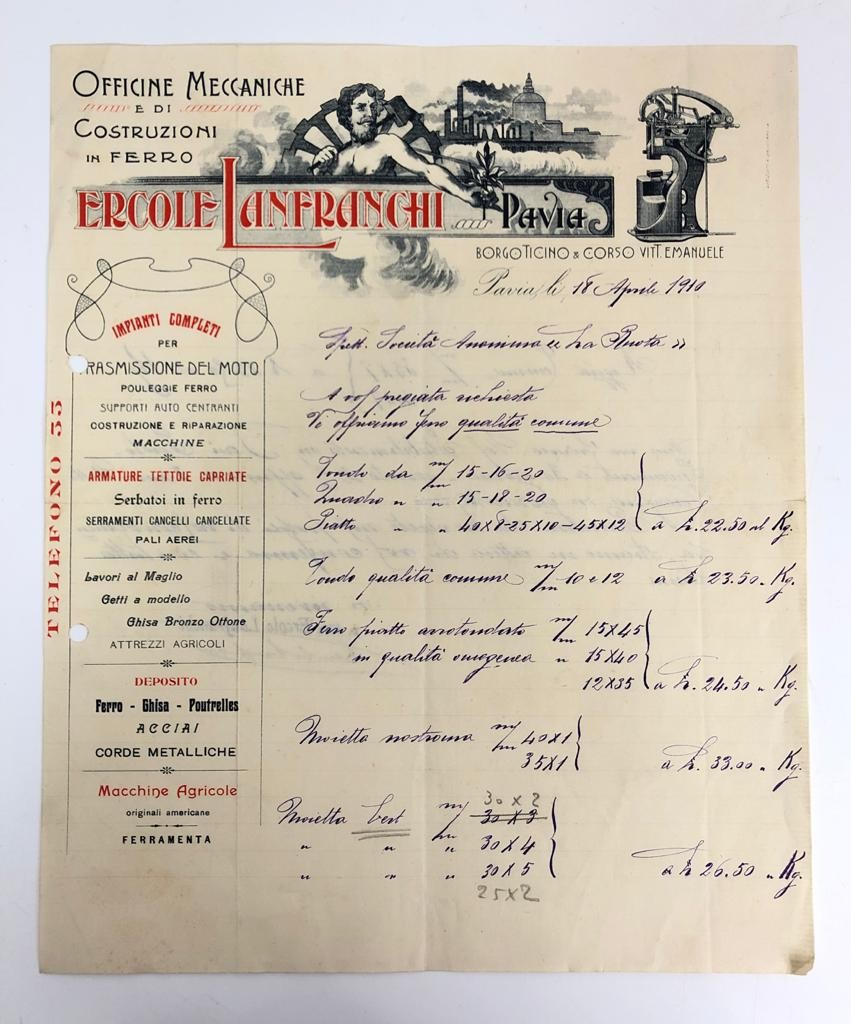 OFFICINE MECCANICHE
E DI
COSTRUZIONI
IN FERRO
ERCOLE LANFRANCHI PAVIA
BORGO TICINO & CORSO VITT. EMANUELE
Pavia, li 18 Aprile 1910
IMPIANTI COMPLETI
PER
TRASMISSIONE DEL MOTO
POULEGGIE FERRO
SUPPORTI AUTO CENTRANTI
COSTRUZIONE E RIPARAZIONE
MACCHINE
ARMATURE TETTOIE CAPRIATE
Serbatoi in ferro
SERRAMENTI CANCELLI CANCELLATE
PALI AEREI
Lavori al Maglio
Getti a modello
Ghisa Bronzo Ottone
ATTREZZI AGRICOLI
DEPOSITO
Ferro - Ghisa - Poutrelles
ACCIAI
CORDE METALLICHE
Macchine Agricole
originali americane
FERRAMENTA
TELEFONO 55
Spett. Società Anonima « La Ruota »
A vos pregiata richiesta
Vi offriamo ferro qualità comune
Tondo da m/m 15-16-20
Quadro " " 15-18-20
Piatto " " 40X8-25X10-45X12 a L. 22.50 al Kg.
Tondo qualità comune m/m 10 e 12 a L 23.50 " Kg.
Ferro piatto arrotondato m/m 15X45
in qualità omogenea " 15X40
12X35 a L. 24.50 " Kg.
Moietta nostrana m/m 40X1
35X1 a L. 33.00 " Kg.
30X2
Moietta m/m 30X3
" " " 30X4
" " " 30X5 a L 26.50 " Kg.
25X2